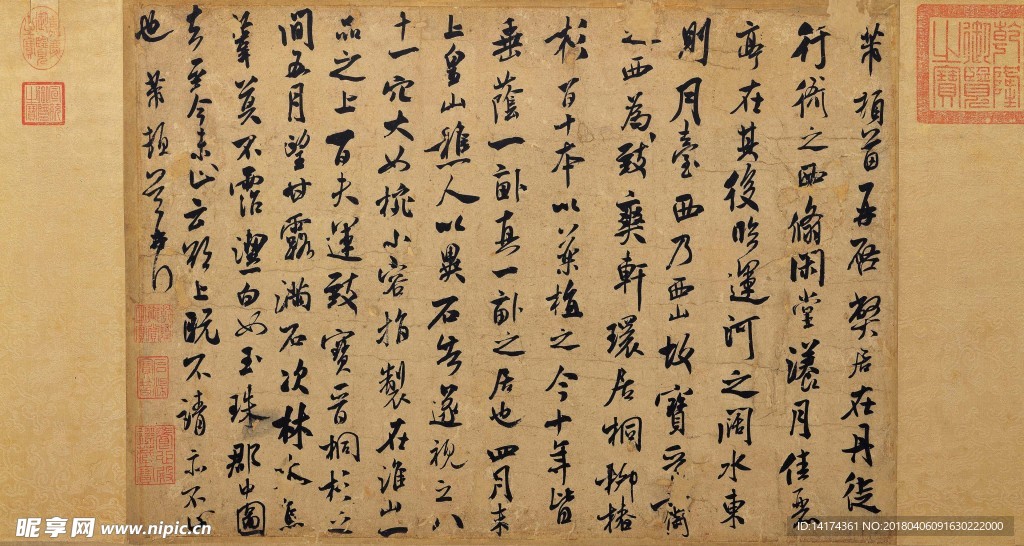 芾頓首再啓弊居在丹徒
行衙之西翛閑堂漾月佳麗
亭在其後臨運河之闊水東
則月臺西乃西山故寶晉
之西為致爽軒環居桐柳椿
杉百十本以藥植之今十年皆
垂蔭一畝真一畝之居也四月末
上皇山樵人以異石告遂視之八
十一穴大如椀小容指製在淮山一
品之上百夫運致寶晉桐杉之
間五月望甘露滿石次林木焦
葦莫不霑潔白如玉珠郡中圖
去至今未止云欲上既不請亦不
也芾頓首
乾隆御覽之寶
昵享网 www.nipic.cn
ID:14174361 NO:20180406091630222000